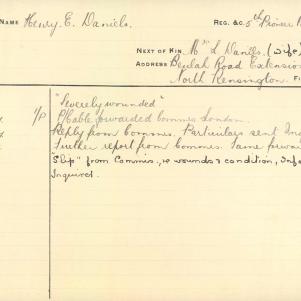 NAME Henry E. Daniels. REG. &C. 5th Pioneer
NEXT OF KIN Mrs L Daniels. (Wife)
ADDRESS Beulah Road Extension
North Kensington.
"Severely wounded"
P/P Cable forwarded Commis London.
Reply from Commis. Particulars sent
Further report from Commis. Same
"Slip" from Commis., re wounds & condition,
Inquiret.